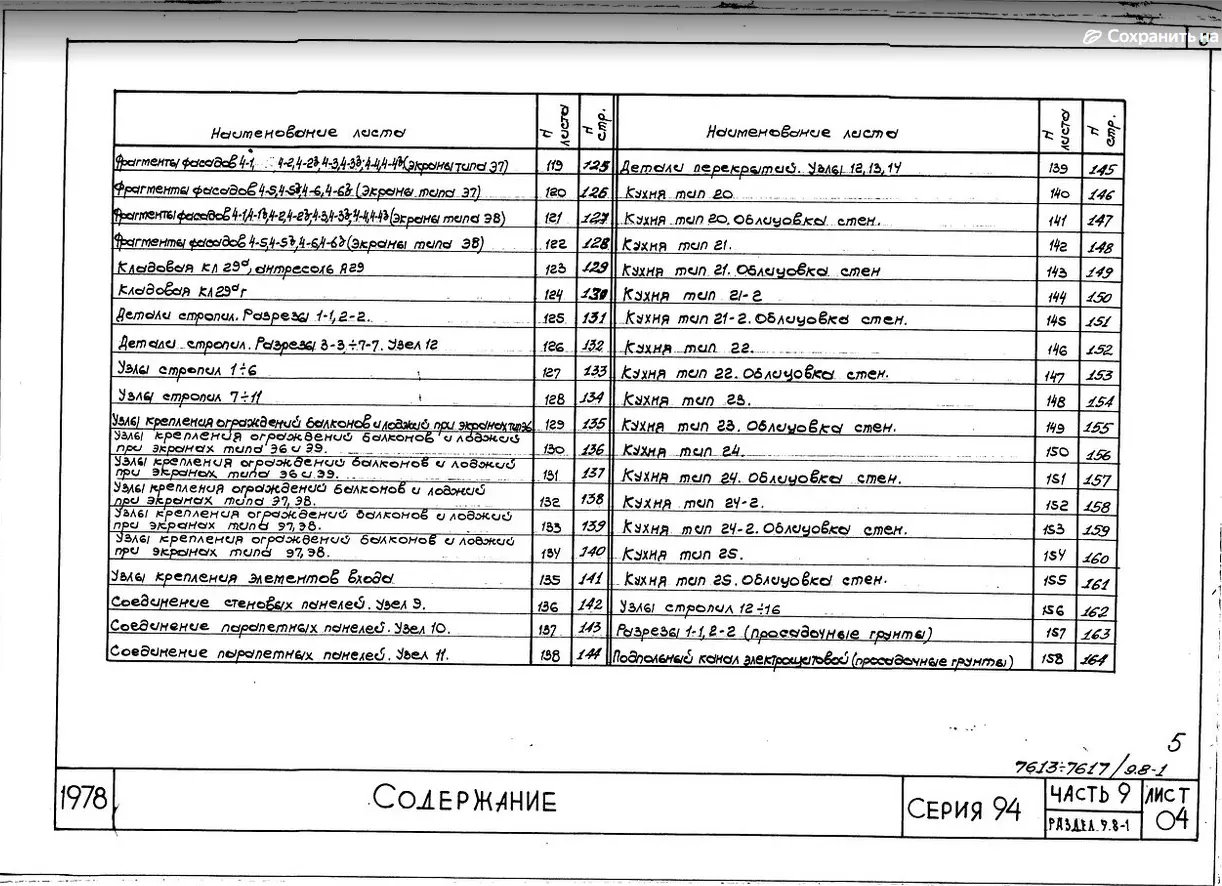 Сохранить на
Наименование листа | N листа | N стр.
Фрагменты фасадов 4-1, 4-2, 4-2д, 4-3, 4-3д, 4-4, 4-4д (экраны типа Э7) | 119 | 125
Фрагменты фасадов 4-5, 4-5д, 4-6, 4-6д (экраны типа Э7) | 120 | 126
Фрагменты фасадов 4-1, 4-1д, 4-2, 4-2д, 4-3, 4-3д, 4-4, 4-4д (экраны типа Э8) | 121 | 127
Фрагменты фасадов 4-5, 4-5д, 4-6, 4-6д (экраны типа Э8) | 122 | 128
Кладовая КЛ 29д, антресоль Я29 | 123 | 129
Кладовая КЛ29дг | 124 | 130
Детали стропил. Разрезы 1-1, 2-2. | 125 | 131
Детали стропил. Разрезы 3-3,÷7-7. Узел 12 | 126 | 132
Узлы стропил 1÷6 | 127 | 133
Узлы стропил 7÷11 | 128 | 134
Узлы крепления ограждений балконов и лоджий при экранах | 129 | 135
Узлы крепления ограждений балконов и лоджий
при экранах типа Э6 и Э9. | 130 | 136
Узлы крепления ограждений балконов и лоджий
при экранах типа Э6 и Э9. | 131 | 137
Узлы крепления ограждений балконов и лоджий
при экранах типа Э7, Э8. | 132 | 138
Узлы крепления ограждений балконов и лоджий
при экранах типа Э7, Э8. | 133 | 139
Узлы крепления ограждений балконов и лоджий
при экранах типа Э7, Э8. | 134 | 140
Узлы крепления элементов входа | 135 | 141
Соединение стеновых панелей. Узел 9. | 136 | 142
Соединение парапетных панелей. Узел 10. | 137 | 143
Соединение парапетных панелей. Узел 11. | 138 | 144
Наименование листа | N листа | N стр.
Детали перекрытий. Узлы 12, 13, 14 | 139 | 145
Кухня тип 20 | 140 | 146
Кухня тип 20. Облицовка стен. | 141 | 147
Кухня тип 21. | 142 | 148
Кухня тип 21. Облицовка стен | 143 | 149
Кухня тип 21-2 | 144 | 150
Кухня тип 21-2. Облицовка стен. | 145 | 151
Кухня тип 22. | 146 | 152
Кухня тип 22. Облицовка стен. | 147 | 153
Кухня тип 23. | 148 | 154
Кухня тип 23. Облицовка стен. | 149 | 155
Кухня тип 24. | 150 | 156
Кухня тип 24. Облицовка стен. | 151 | 157
Кухня тип 24-2. | 152 | 158
Кухня тип 24-2. Облицовка стен. | 153 | 159
Кухня тип 25. | 154 | 160
Кухня тип 25. Облицовка стен. | 155 | 161
Узлы стропил 12÷16 | 156 | 162
Разрезы 1-1, 2-2 (просадочные грунты) | 157 | 163
Подпольный канал электрощитовой (просадочные грунты) | 158 | 164
5
7613÷7617/9.8-1
1978
Содержание
Серия 94
Часть 9
Раздел. 9.8-1
Лист
04